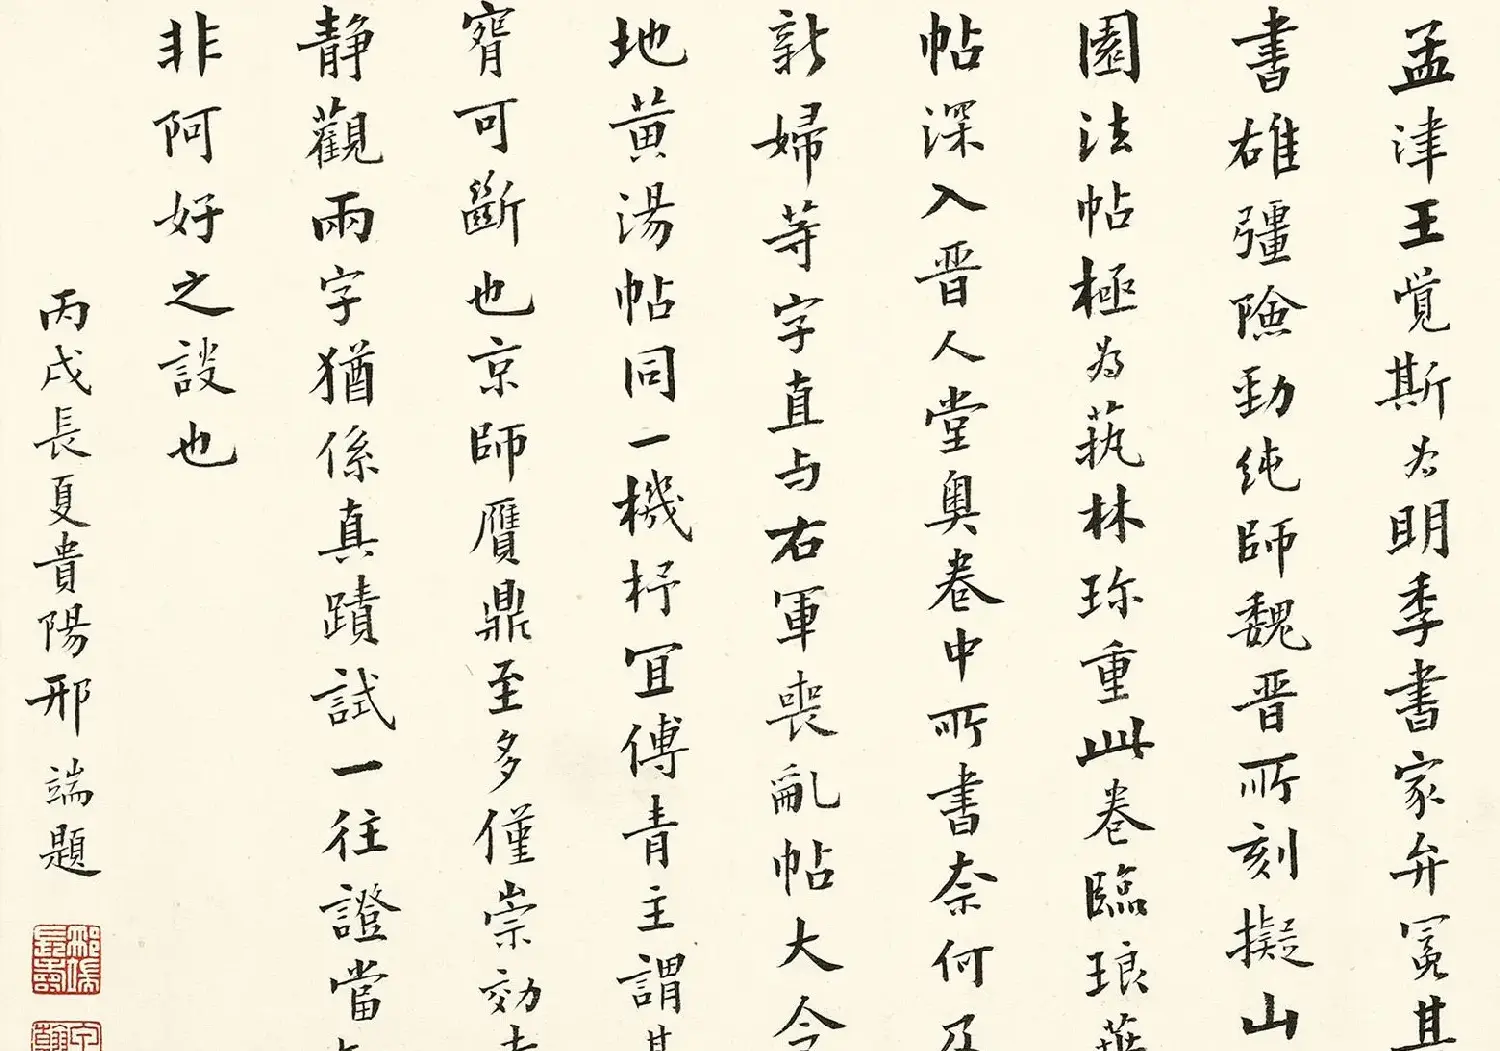 孟津王覚斯为明季書家弁冕其
書雄彊險勁纯師魏晋所刻擬山
園法帖極为蓺林珎重此卷臨琅華
帖深入晋人堂奥卷中所書奈何及
新婦等字直与右軍喪亂帖大令
地黄湯帖同一機杼冝傅青主謂其
窅可斷也京師贋鼎至多僅崇効寺
静觀兩字猶係真蹟試一往證當知
非阿好之談也
丙戌長夏貴陽邢端題
邢端長壽